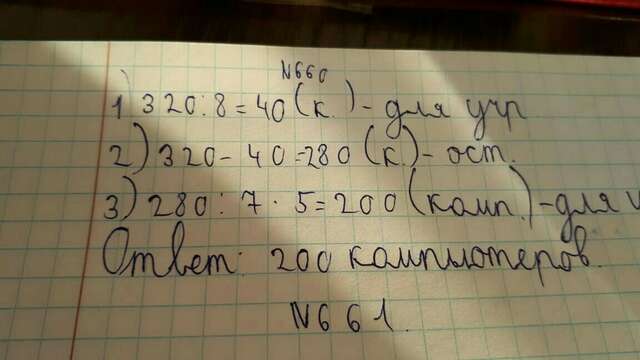 N660
1) 320:8=40(к.)-для учр
2) 320-40=280(к.)-ост.
3) 280:7·5=200(комп.)-для
Ответ: 200 компютеров.
N661.